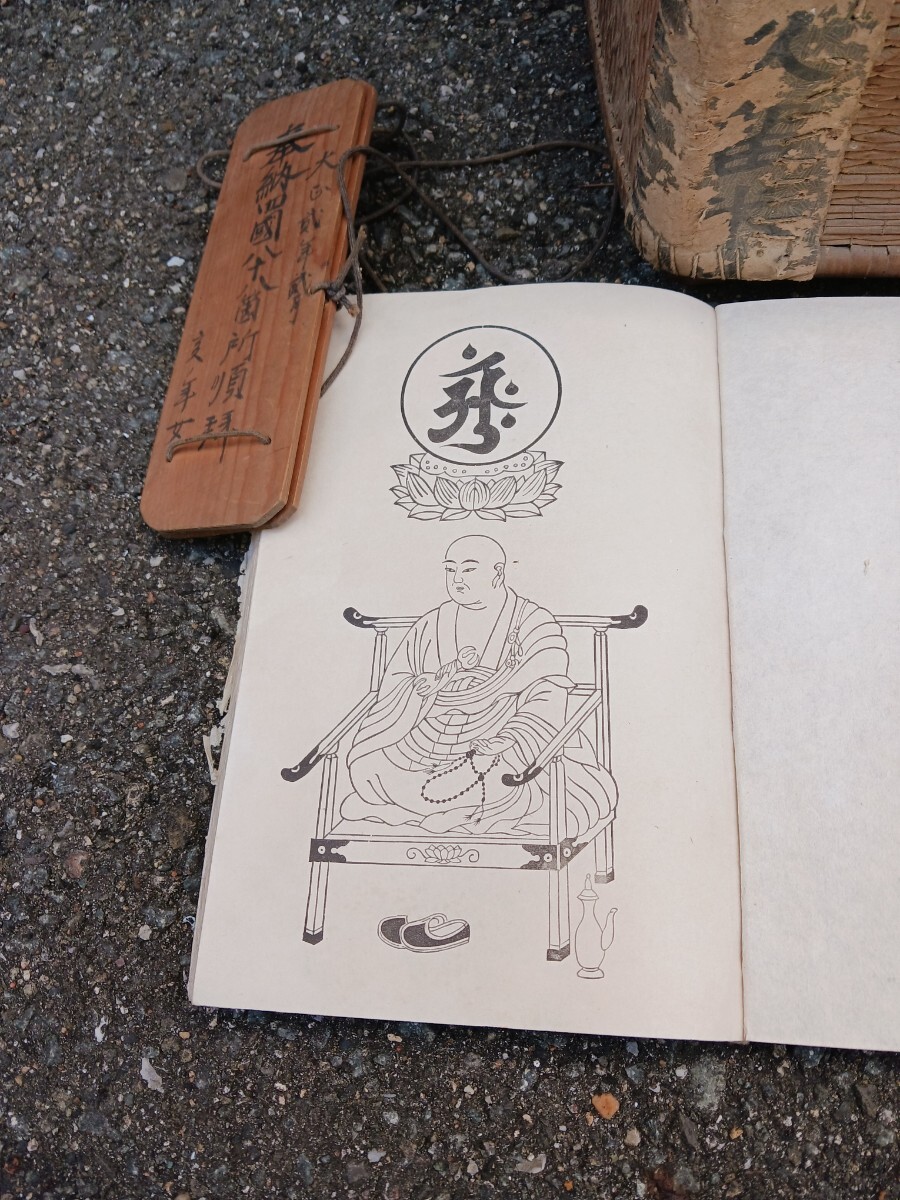 大正貳年貳月
奉納四國八十八箇所順拜
亥年女